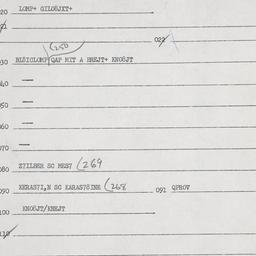 020 LOMP+ GILOŠJXT+
022
(250
030 BLŠICLOMP QAP MIT A HREJT+ KNOŠJT
040 —
050 —
060 —
070 —
080 Z7ILBER SC MES7 (269
090 KERAS7I,N SC KARAS7SINE (268 091 QPROV
100 KNOŠJT/KNEJT
110